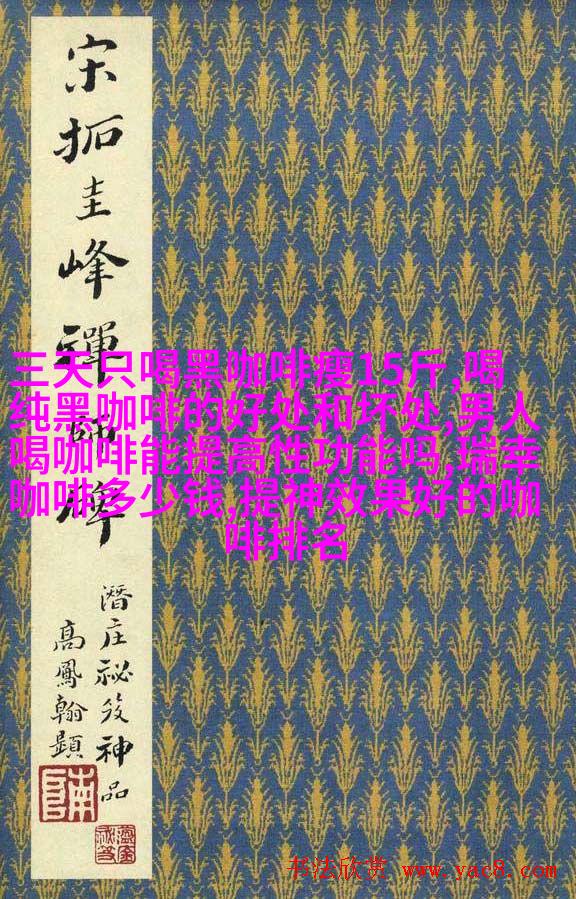 宋拓圭峰禪師碑
潛庄祕笈神品
高鳳翰題
三天只喝黑咖啡瘦15斤,喝
纯黑咖啡的好处和坏处,男人
喝咖啡能提高性功能吗,瑞幸
咖啡多少钱,提神效果好的咖
啡排名
书法欣赏 www.yac8.com